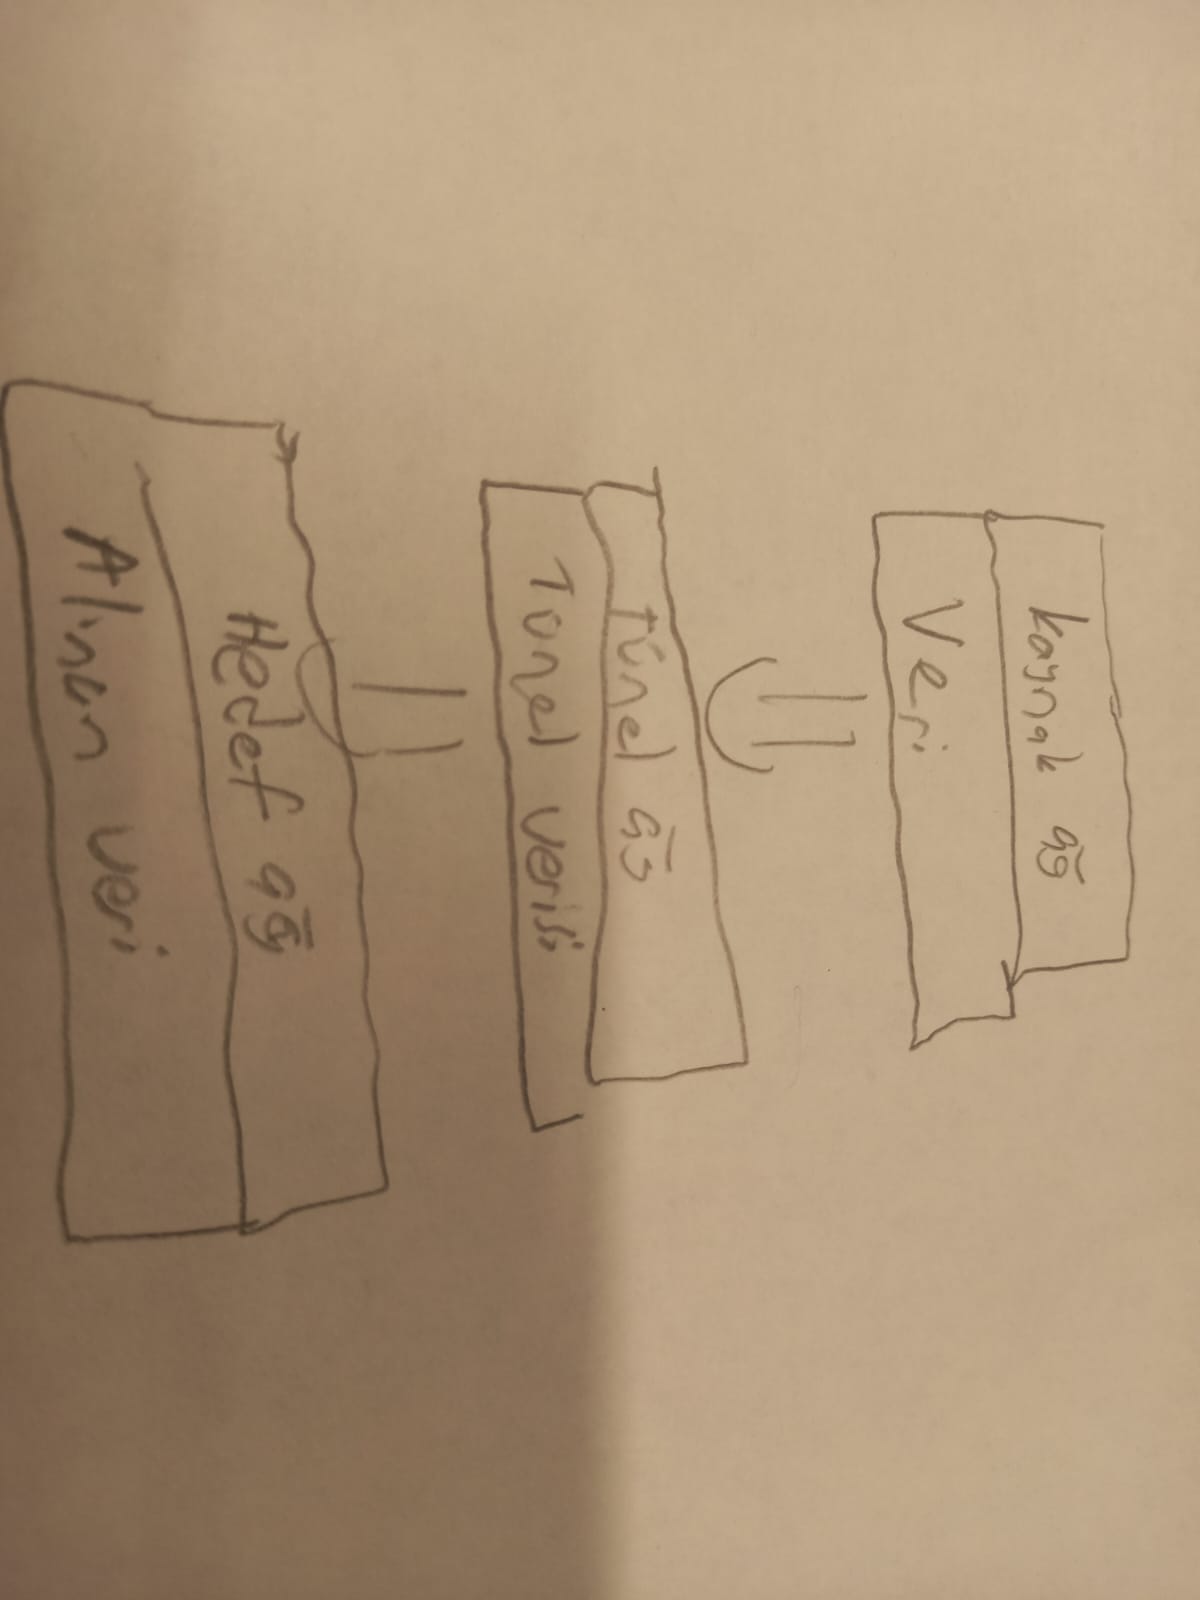 Kaynak ağ
Veri
Tünel ağ
Tünel Verisi
Hedef ağ
Alınan veri